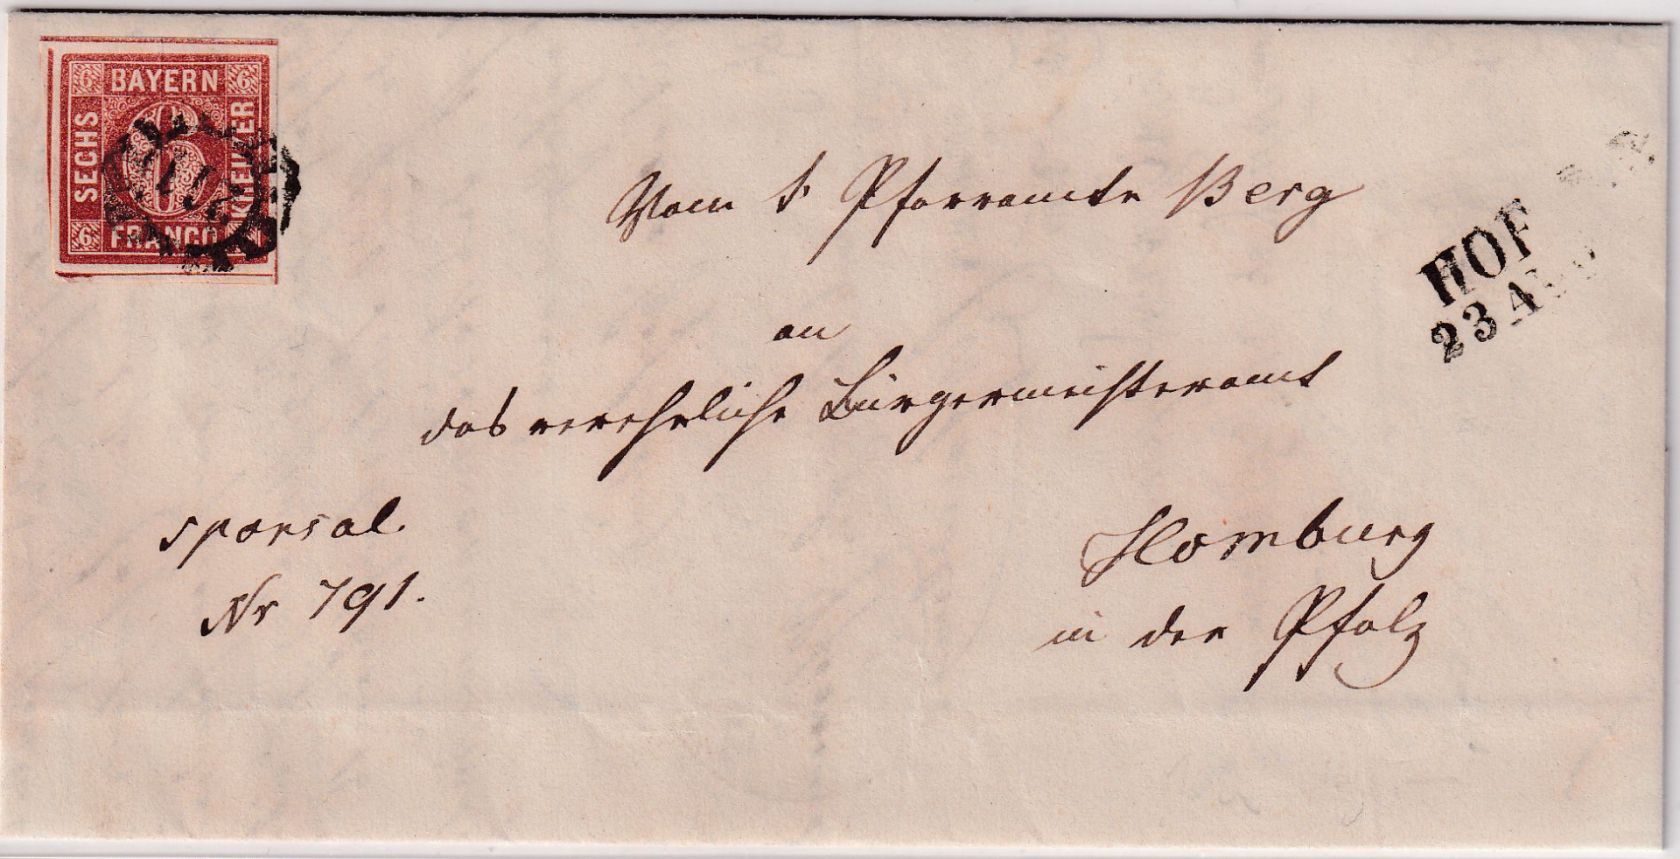 6 BAYERN 6
SECHS
6
KREUZER
6 FRANCO
Vom k. Pfarramte Berg
HOF
23 AUG
an
das verehrliche Bürgermeisteramt
sponsal.
Nr 791.
Homburg
in der Pfalz